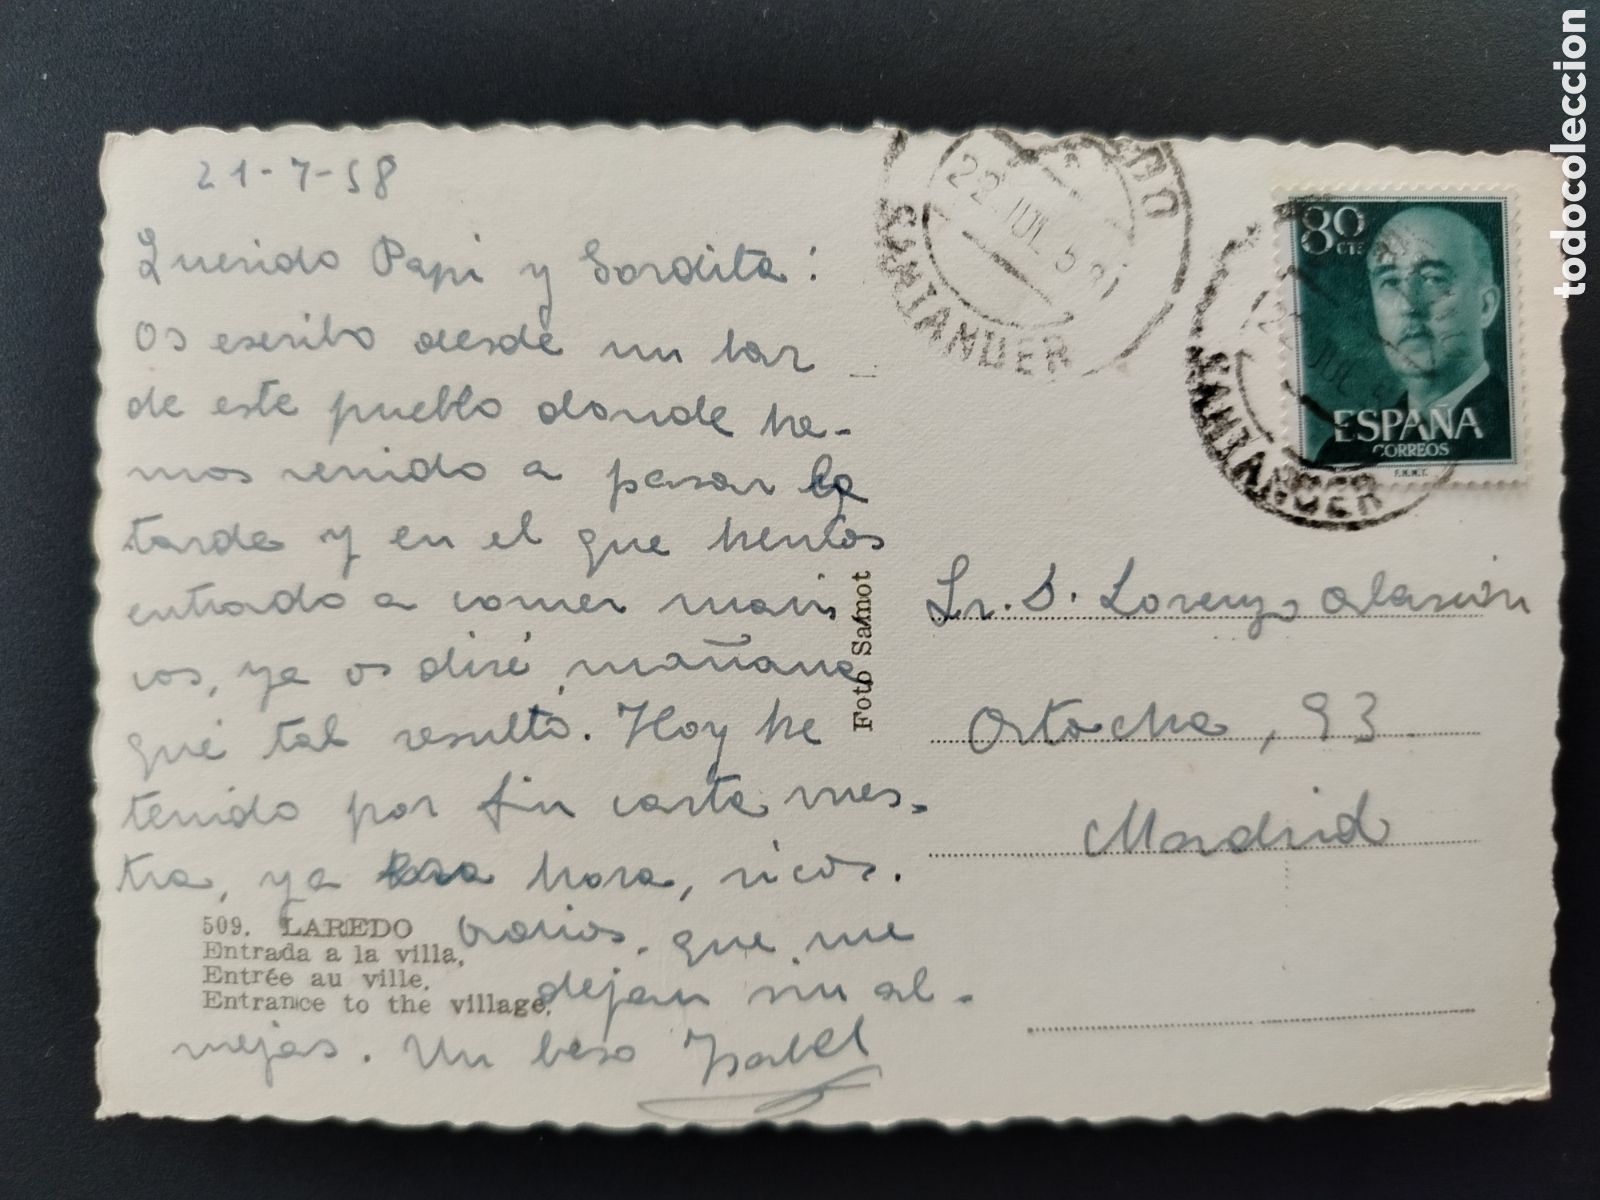 21-7-58
Querido Papi y Gordita:
Os escribo desde un bar
de este pueblo donde he-
mos venido a pasar la
tarde y en el que hemos
entrado a comer maris
cos, ya os diré mañana
qué tal resultó. Hoy he
tenido por fin carta vues-
tra, ya era hora, ricos.
Adios. que me
dejan sin al-
mejas. Un beso Isabel
509. LAREDO
Entrada a la villa.
Entrée au ville.
Entrance to the village.
Foto Samot
22 JUL 58
SANTANDER
80
CTS
ESPAÑA
CORREOS
F.N.M.T.
JUL
SANTANDER
Sr. D. Lorenzo Alarcón
Atocha, 93
Madrid
todocoleccion